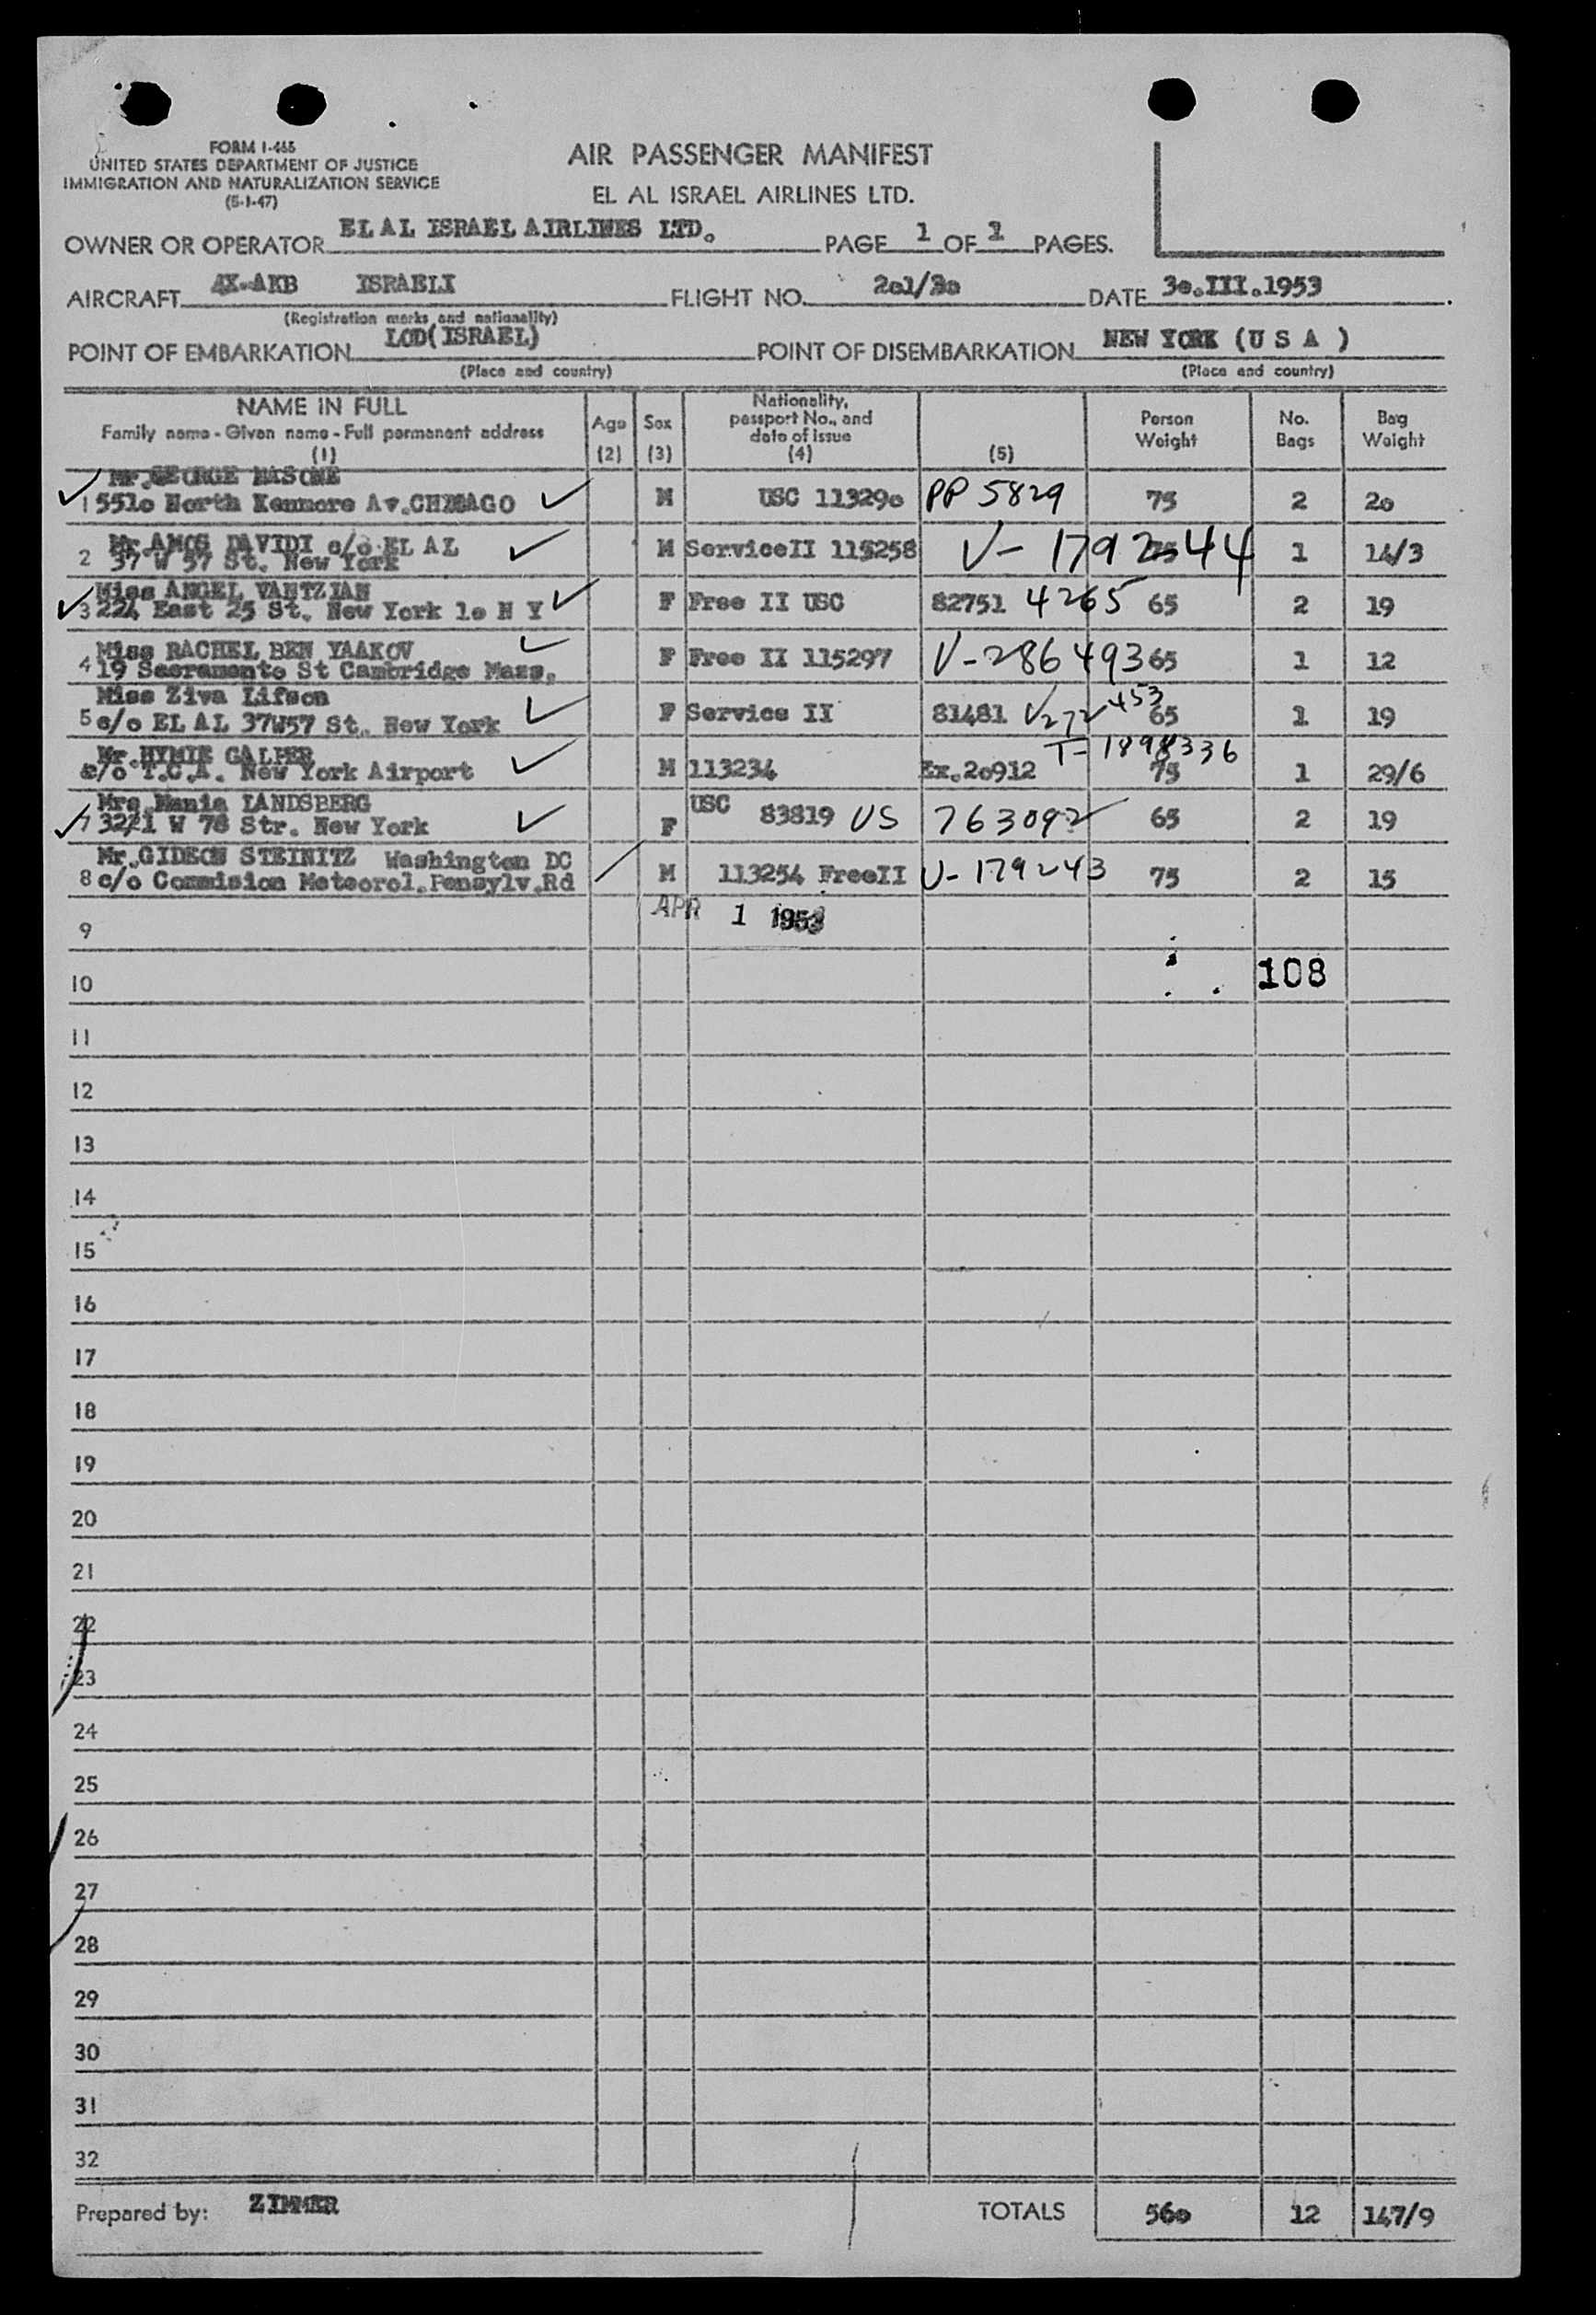 FORM I-466
UNITED STATES DEPARTMENT OF JUSTICE
IMMIGRATION AND NATURALIZATION SERVICE
(5-1-47)
AIR PASSENGER MANIFEST
EL AL ISRAEL AIRLINES LTD.
OWNER OR OPERATOR EL AL ISRAEL AIRLINES LTD. PAGE 1 OF 1 PAGES.
AIRCRAFT 4X-AKB ISRAELI FLIGHT NO. 2o1/3o DATE 3o.III.1953
(Registration marks and nationality)
POINT OF EMBARKATION LOD(ISRAEL) POINT OF DISEMBARKATION NEW YORK (U S A )
(Place and country) (Place and country)
NAME IN FULL
Family name - Given name - Full permanent address
(1)
Age
(2)
Sex
(3)
Nationality,
passport No., and
date of issue
(4)
(5)
Person
Weight
No.
Bags
Bag
Weight
Mr.GEORGE
1 551o North Kenmore Av.CHICAGO M USC 11329o PP 5829 75 2 2o
Mr.AMOS DAVIDI c/o EL AL
2 37 W 57 St. New York M ServiceII 115258 V-1792544 1 14/3
Miss ANGEL VANTZIAN
3 224 East 25 St. New York 1o N Y F Free II USC 82751 4265 65 2 19
Miss RACHEL BEN YAAKOV
4 19 Sacramento St Cambridge Mass. F Free II 115297 V-286493 65 1 12
Miss Ziva Lifson
5 c/o EL AL 37W57 St. New York F Service II 81481 V272453 65 1 19
Mr.HYMIE GALPER
c/o T.C.A. New York Airport M 113234 Ex.2o912 T-1898336 75 1 29/6
Mrs.Mania LANDSBERG
7 32/1 W 78 Str. New York F USC 83819 US 763092 65 2 19
Mr.GIDEON STEINITZ Washington DC
8 c/o Commision Meteorol.Pensylv.Rd M 113254 FreeII V-179243 75 2 15
APR 1 1953
9
10 108
11
12
13
14
15
16
17
18
19
20
21
22
23
24
25
26
27
28
29
30
31
32
Prepared by: ZIMMER TOTALS 56o 12 147/9